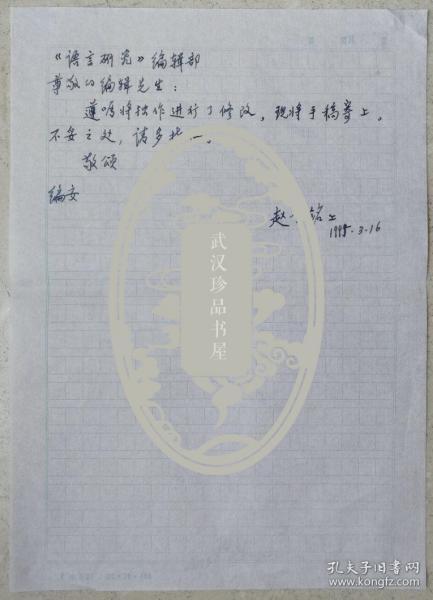 《语言研究》编辑部
尊敬的编辑先生：
遵嘱将拙作进行了修改，现将手稿寄上。
不妥之处，请多
敬颂
编安
赵 铭上
1995.3.16
武汉珍品书屋
孔夫子旧书网
www.kongfz.com